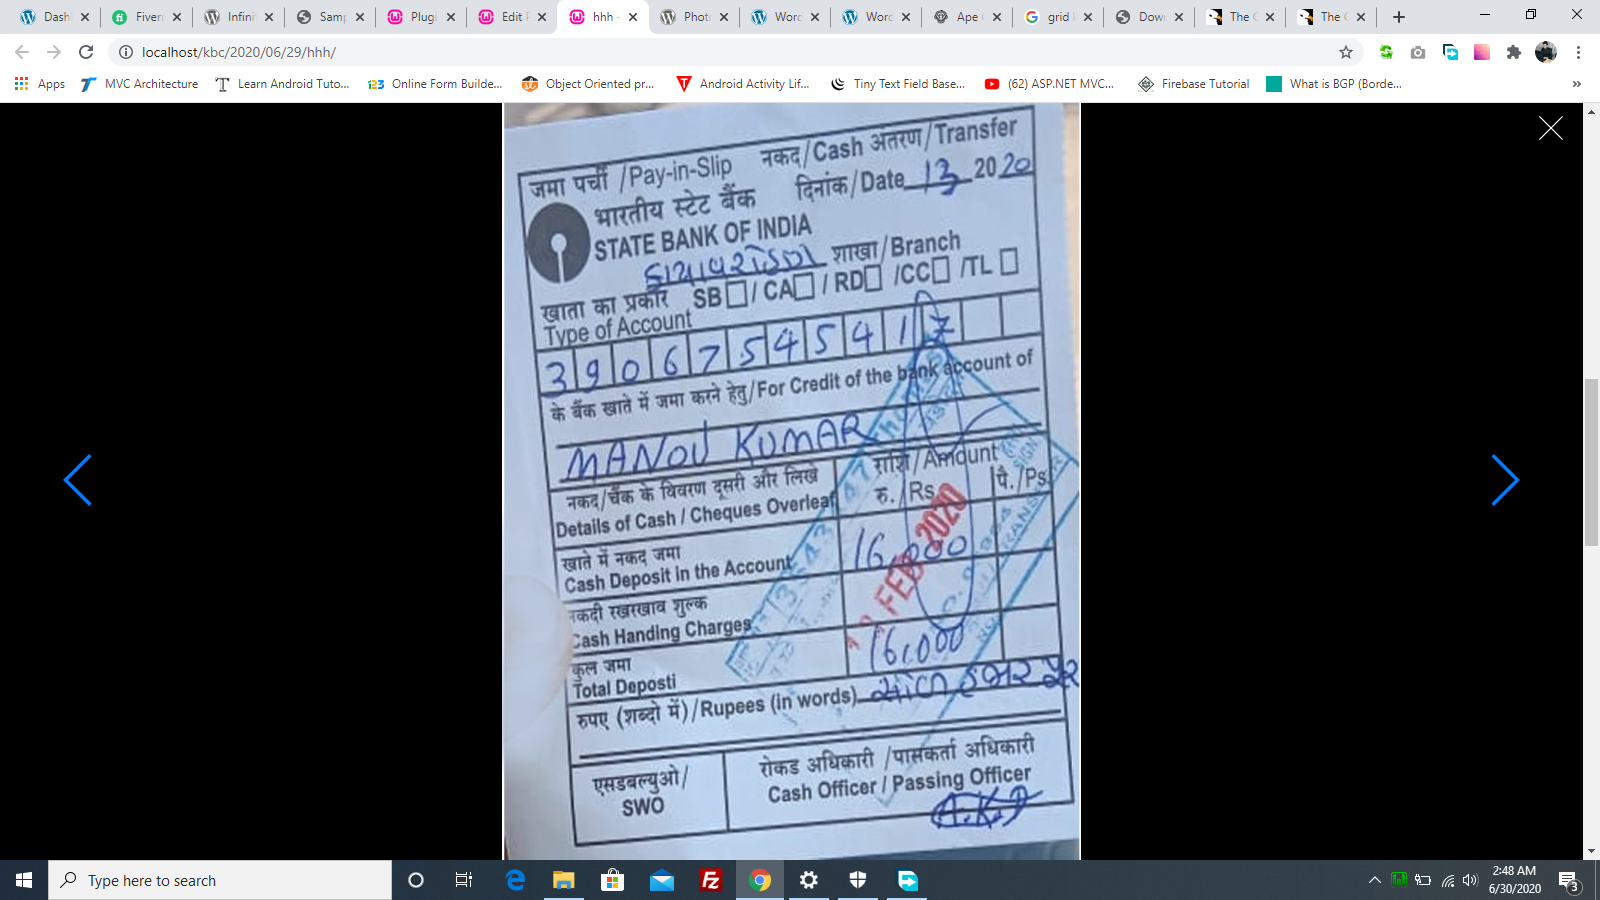 Dash
Fiverr
Infini
Samp
Plugi
Edit P
hhh -
Photo
Word
Word
Ape G
grid l
Down
The G
The G
localhost/kbc/2020/06/29/hhh/
Apps
MVC Architecture
Learn Android Tuto...
Online Form Builde...
Object Oriented pr...
Android Activity Lif...
Tiny Text Field Base...
(62) ASP.NET MVC...
Firebase Tutorial
What is BGP (Borde...
»
जमा पर्ची /Pay-in-Slip नकद/Cash अंतरण/Transfer
दिनांक/Date 13 2020
भारतीय स्टेट बैंक
STATE BANK OF INDIA
शाखा/Branch
खाता का प्रकार SB / CA / RD /CC /TL
Type of Account
39067545417
के बैंक खाते में जमा करने हेतु/For Credit of the bank account of
MANOJ KUMAR
नकद/चैक के विवरण दूसरी और लिखे राशि/Amount
Details of Cash / Cheques Overleaf रु./Rs पै./Ps.
खाते में नकद जमा
Cash Deposit in the Account 16,000
FEB 2020
नकदी रखरखाव शुल्क
Cash Handing Charges
कुल जमा
Total Deposti 16,000
रुपए (शब्दो में)/Rupees (in words)
एसडबल्युओ/
SWO
रोकड अधिकारी /पासकर्ता अधिकारी
Cash Officer / Passing Officer
Type here to search
2:48 AM
6/30/2020
3